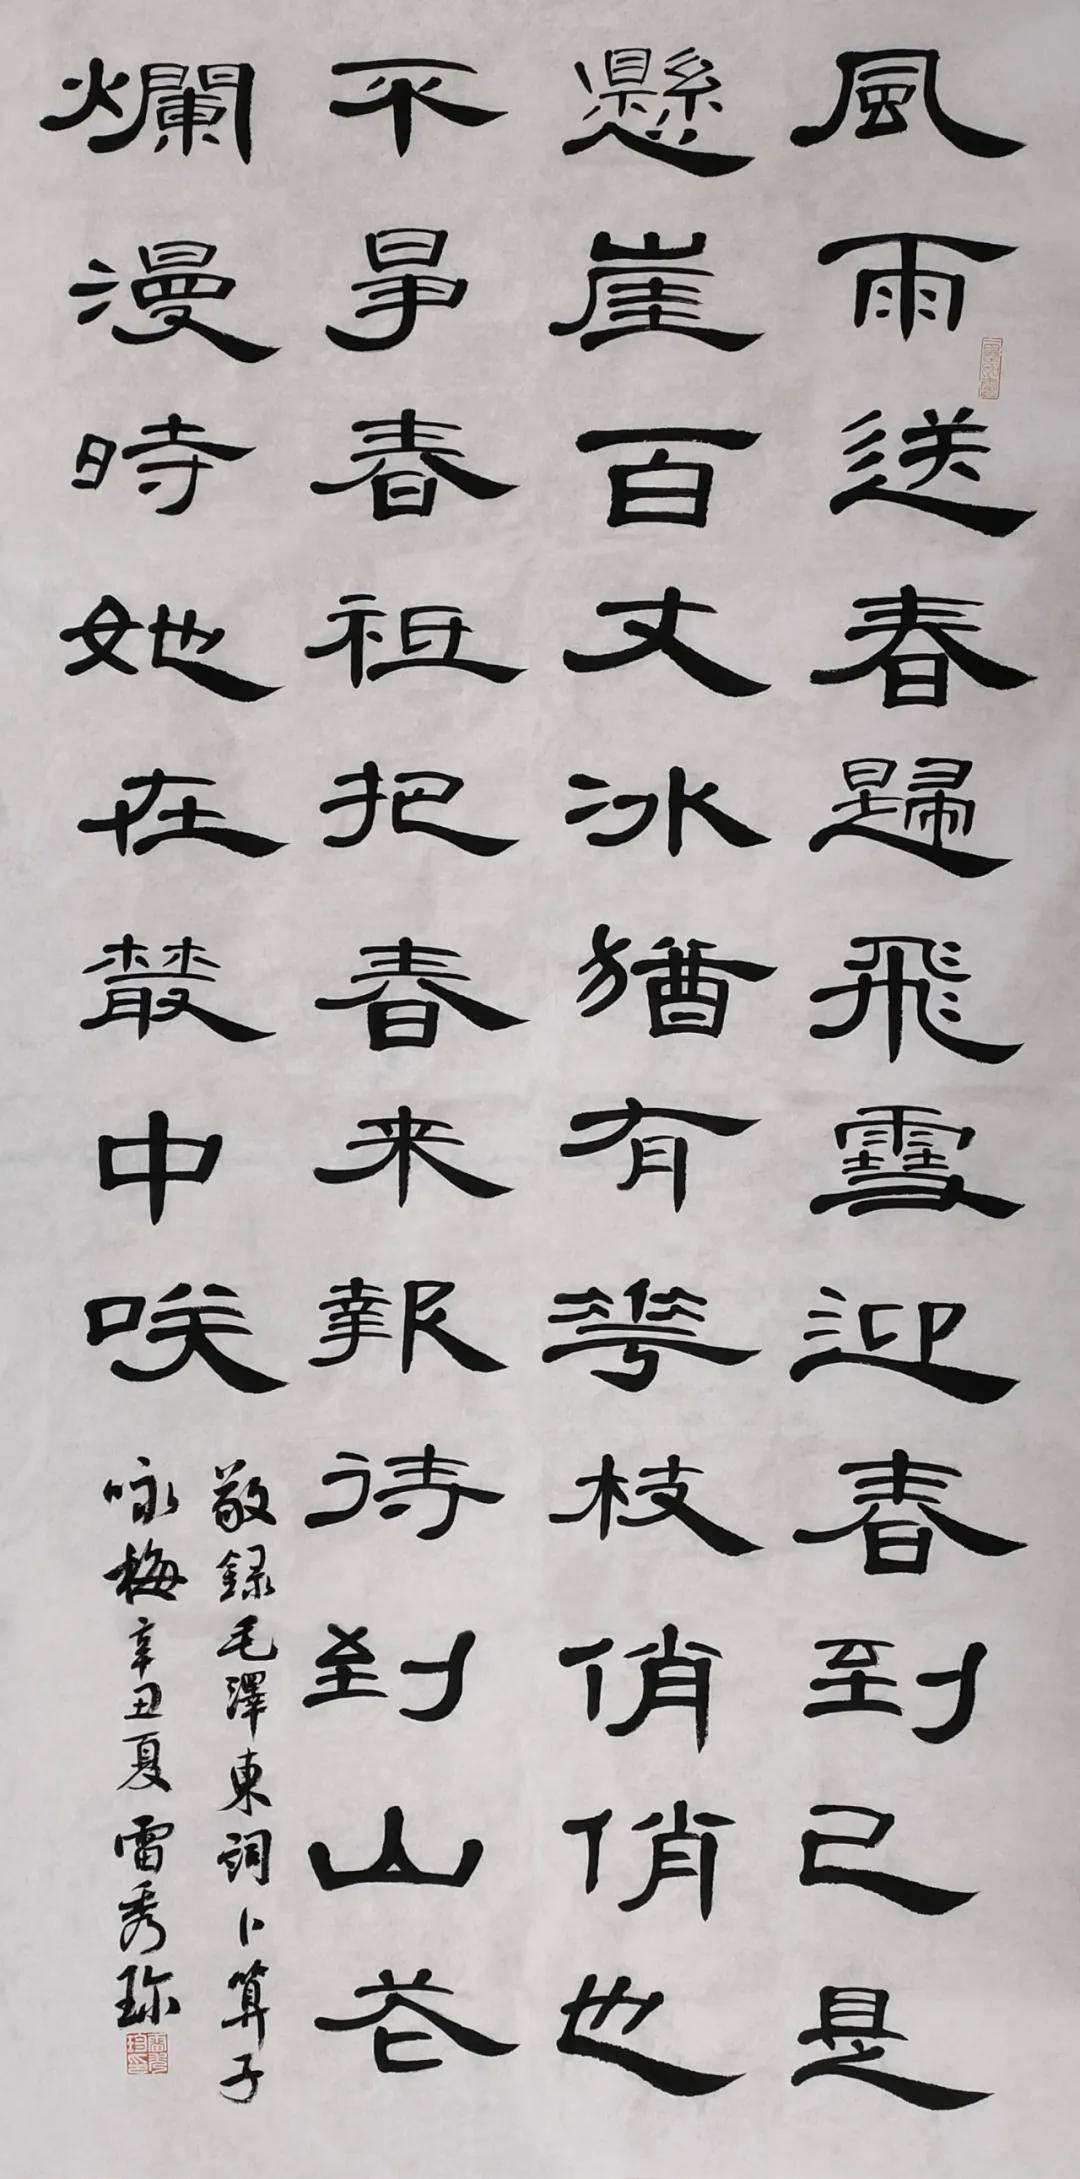 風雨送春歸飛雪迎春到已是
懸崖百丈冰猶有華枝俏俏也
不爭春祗把春来報待到山花
爛漫時她在叢中咲
敬録毛澤東詞卜算子
咏梅辛丑夏雷秀珎